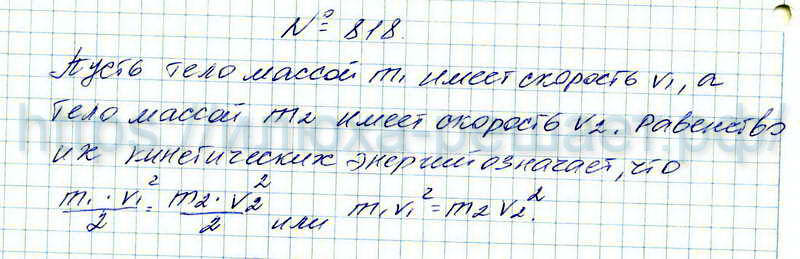 № 818.
Пусть тело массой m₁ имеет скорость v₁, а
тело массой m₂ имеет скорость v₂. Равенство
их кинетических энергий означает, что
m₁·v₁²/2 = m₂·v₂²/2 или m₁v₁² = m₂v₂².